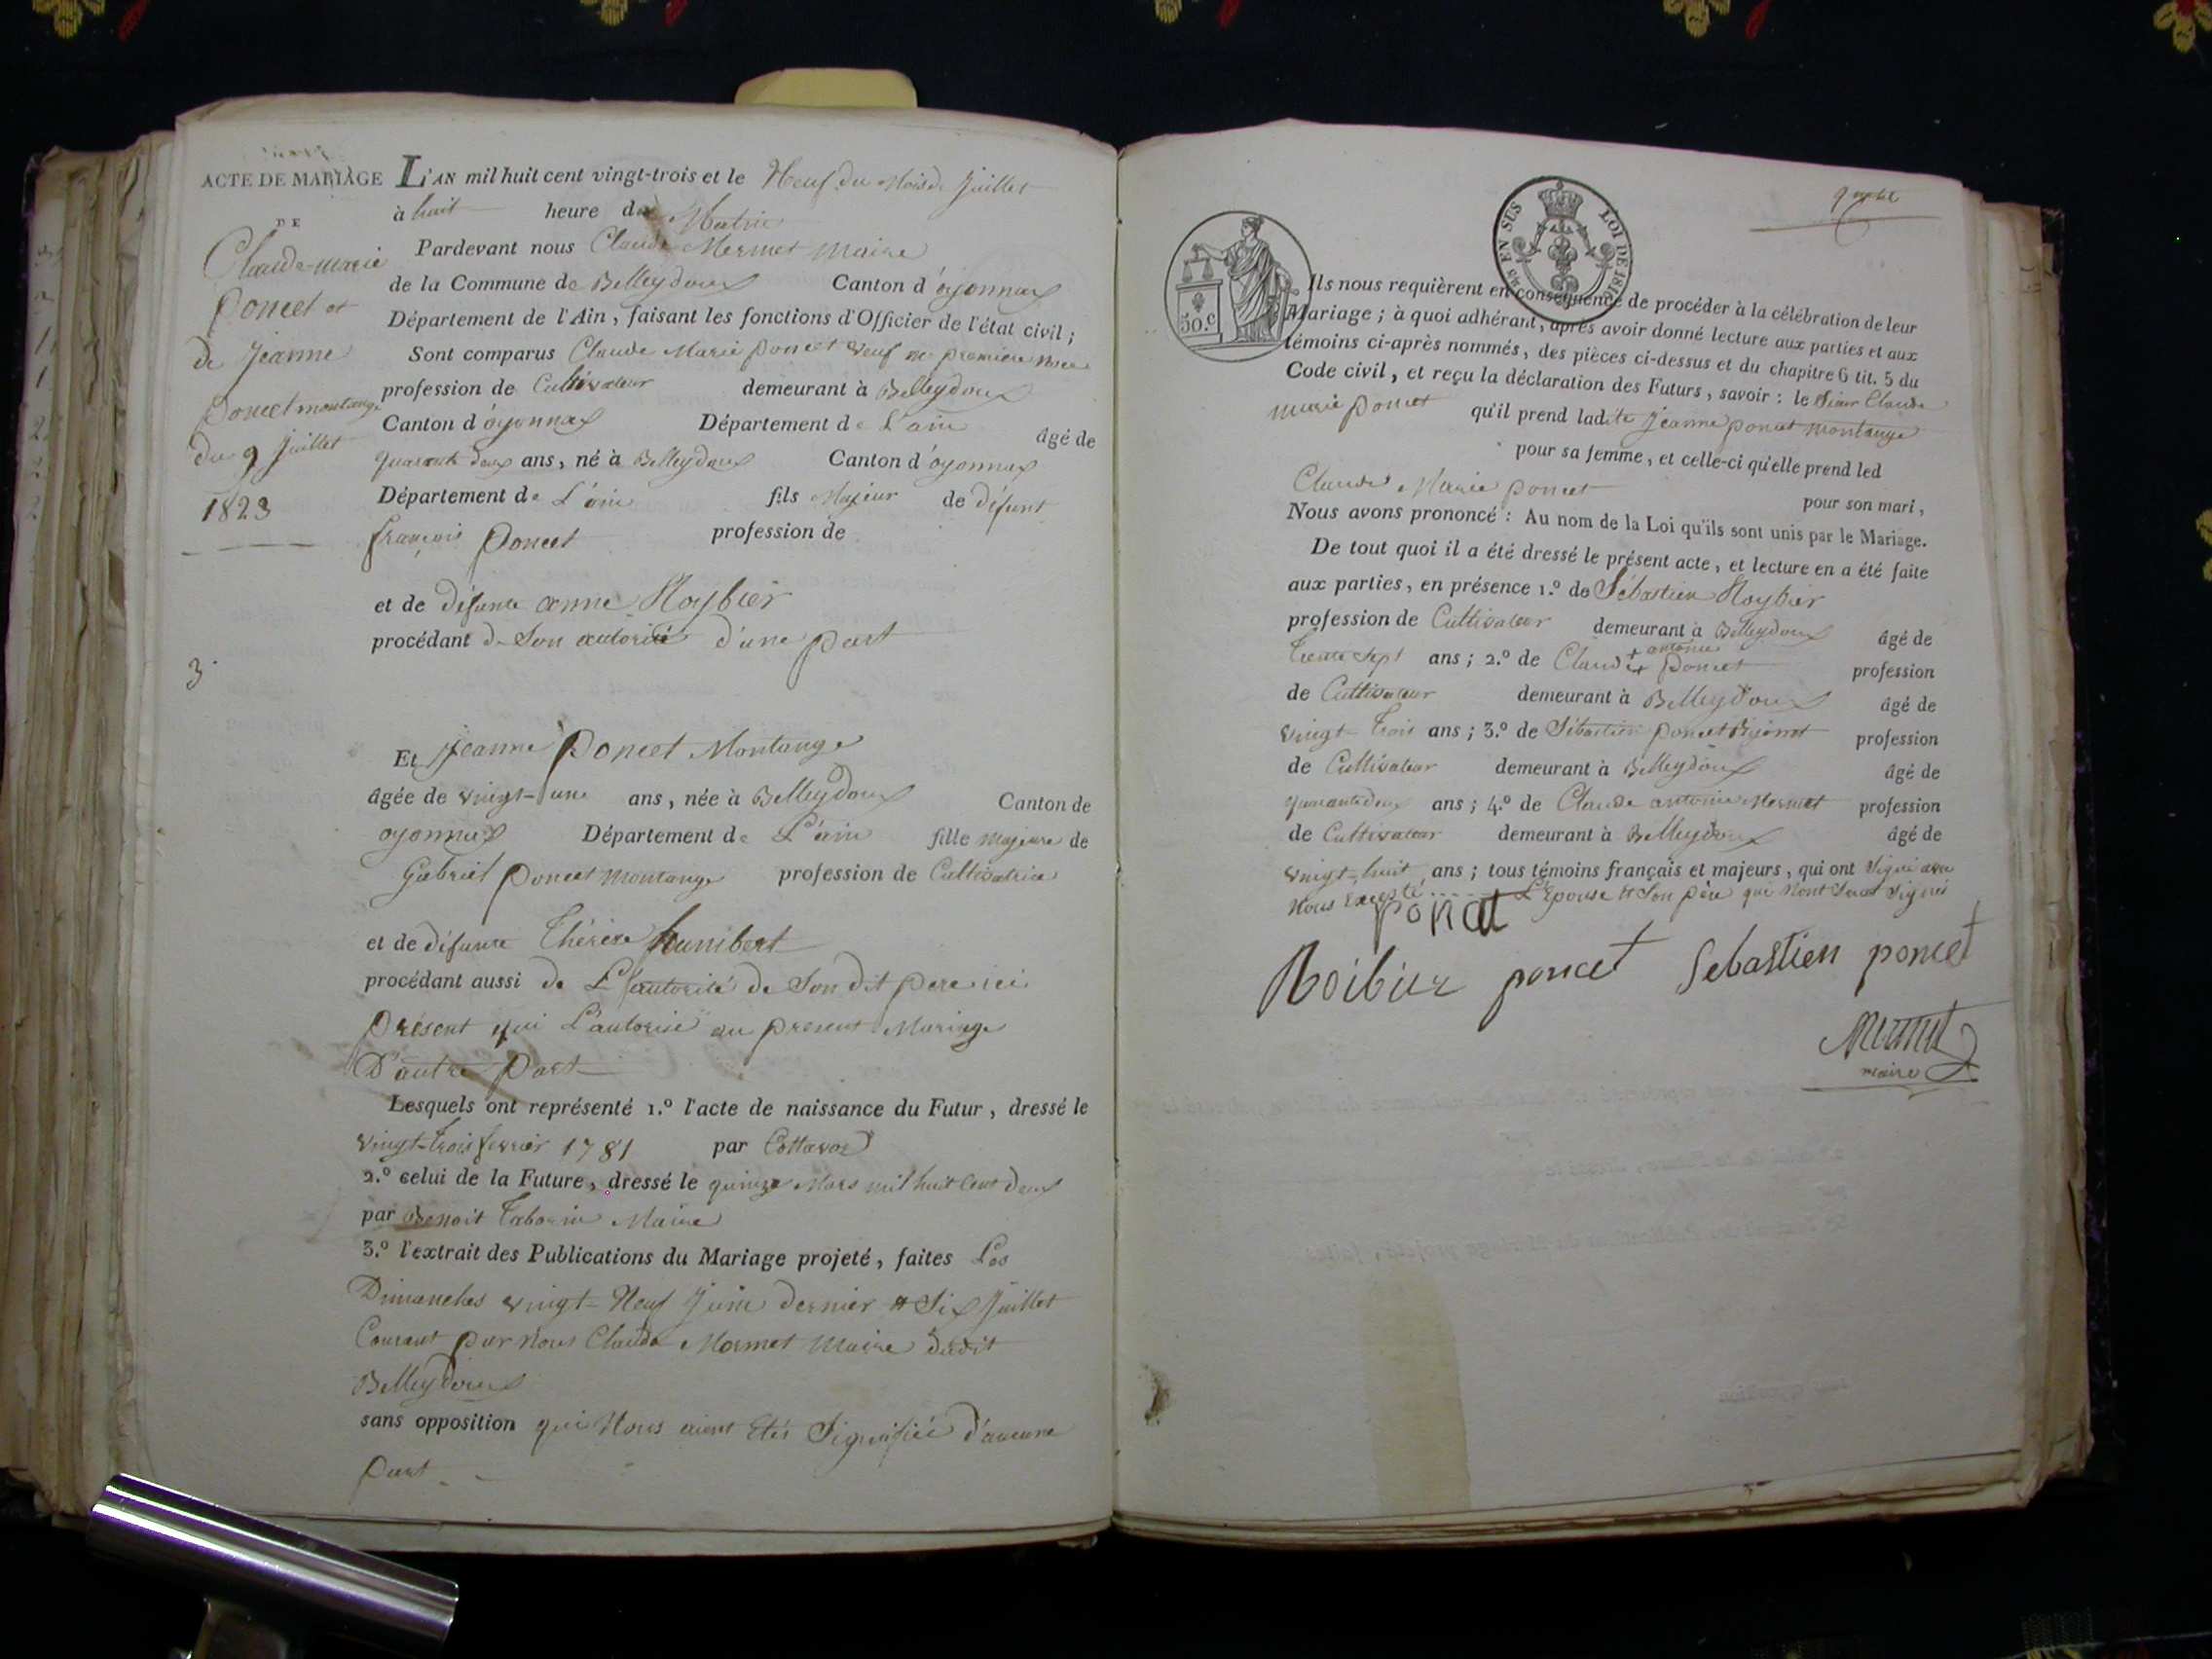 ACTE DE MARIAGE
DE
Claude-marie
Poncet et
de Jeanne
Poncet montange
du 9 Juillet
1823
3
L'AN mil huit cent vingt-trois et le Neuf du Mois de Juillet
à huit heure du Matin
Pardevant nous Claude Mermet Maire
de la Commune de Belleydoux Canton d'oyonnax
Département de l'Ain, faisant les fonctions d'Officier de l'état civil;
Sont comparus Claude Marie poncet veuf première
profession de Cultivateur demeurant à Belleydoux
Canton d'oyonnax Département de L'ain âgé de
quarante deux ans, né à Belleydoux Canton d'oyonnax
Département de L'ain fils Majeur de défunt
françois Poncet profession de
et de défunte anne Noybier
procédant de Son autorité d'une part
Et Jeanne Poncet Montange
âgée de vingt-une ans, née à Belleydoux Canton de
oyonnax Département de L'ain fille majeure de
Gabriel poncet montange profession de Cultivatrice
et de défunte Thérèse humbert
procédant aussi de L'autorité de Son dit pere ici
présent qui L'autorise au présent Mariage
D'autre Part
Lesquels ont représenté 1.º l'acte de naissance du Futur, dressé le
vingt-trois fevrier 1781 par Cottavoz
2.º celui de la Future, dressé le quinze Mars mil huit Cent deux
par Benoit Taborin Maire
3.º l'extrait des Publications du Mariage projeté, faites Les
Dimanches vingt-Neuf Juin dernier et Six Juillet
Courant par Nous Claude Mermet Maire dudit
Belleydoux
sans opposition qui Nous aient Etés Signifiée d'aucune
Part
EN SUS LOI DE 1816
50.c
Ils nous requièrent en conséquence de procéder à la célébration de leur
Mariage; à quoi adhérant, après avoir donné lecture aux parties et aux
témoins ci-après nommés, des pièces ci-dessus et du chapitre 6 tit. 5 du
Code civil, et reçu la déclaration des Futurs, savoir: le Sieur Claude
marie poncet qu'il prend ladite Jeanne poncet montange
pour sa femme, et celle-ci qu'elle prend led
Claude Marie poncet pour son mari,
Nous avons prononcé: Au nom de la Loi qu'ils sont unis par le Mariage.
De tout quoi il a été dressé le présent acte, et lecture en a été faite
aux parties, en présence 1.º de Sébastien Noybier
profession de Cultivateur demeurant à Belleydoux âgé de
trente sept ans; 2.º de Claude antoine Poncet profession
de Cultivateur demeurant à Belleydoux âgé de
vingt-trois ans; 3.º de Sébastien poncet profession
de Cultivateur demeurant à Belleydoux âgé de
quarante deux ans; 4.º de Claude antoine Mermet profession
de Cultivateur demeurant à Belleydoux âgé de
vingt-huit ans; tous témoins français et majeurs, qui ont Signé avec
Nous Excepté L'Epouse et Son père qui Nont Signés
poncet
Noibier poncet Sebastien poncet
Mermet
maire